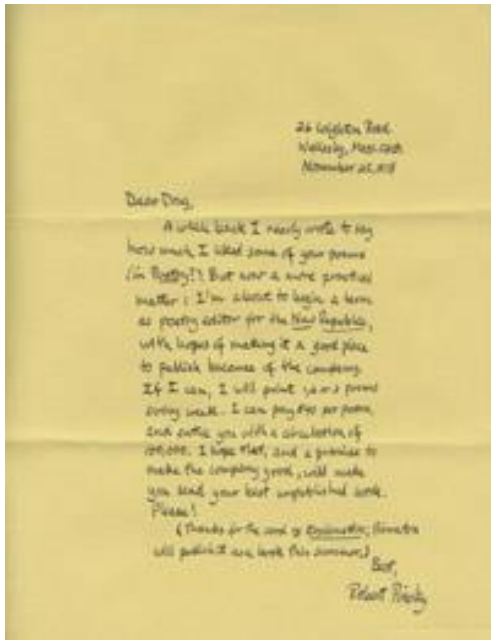 26 Leighton Road
Wellesley, Mass.
November 25,
Dear Doug,
A while back I nearly wrote to say
how much I liked some of your poems
(in Poetry?). But now a more practical
matter: I'm about to begin a term
as poetry editor for the New Republic,
with hopes of making it a good place
to publish because of the company.
If I can, I will print 1 or 2 poems
every week. I can pay $40 per poem,
and entice you with a circulation of
100,000. I hope that, and a promise to
make the company good, will make
you send your best unpublished work.
Please!
(Thanks for the word on Explanation; Princeton
will publish it as a book this summer.)
Best,
Robert Pinsky